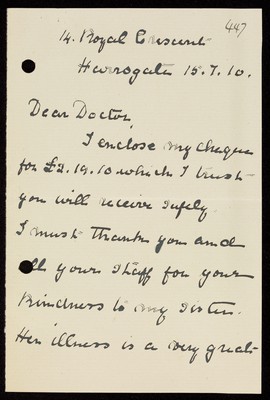 447
14. Royal Crescent
Harrogate 15.7.10.
Dear Doctor,
I enclose my cheque
for £2.19.10 which I trust
you will receive safely.
I must thank you and
all your staff for your
kindness to my sister.
Her illness is a very great